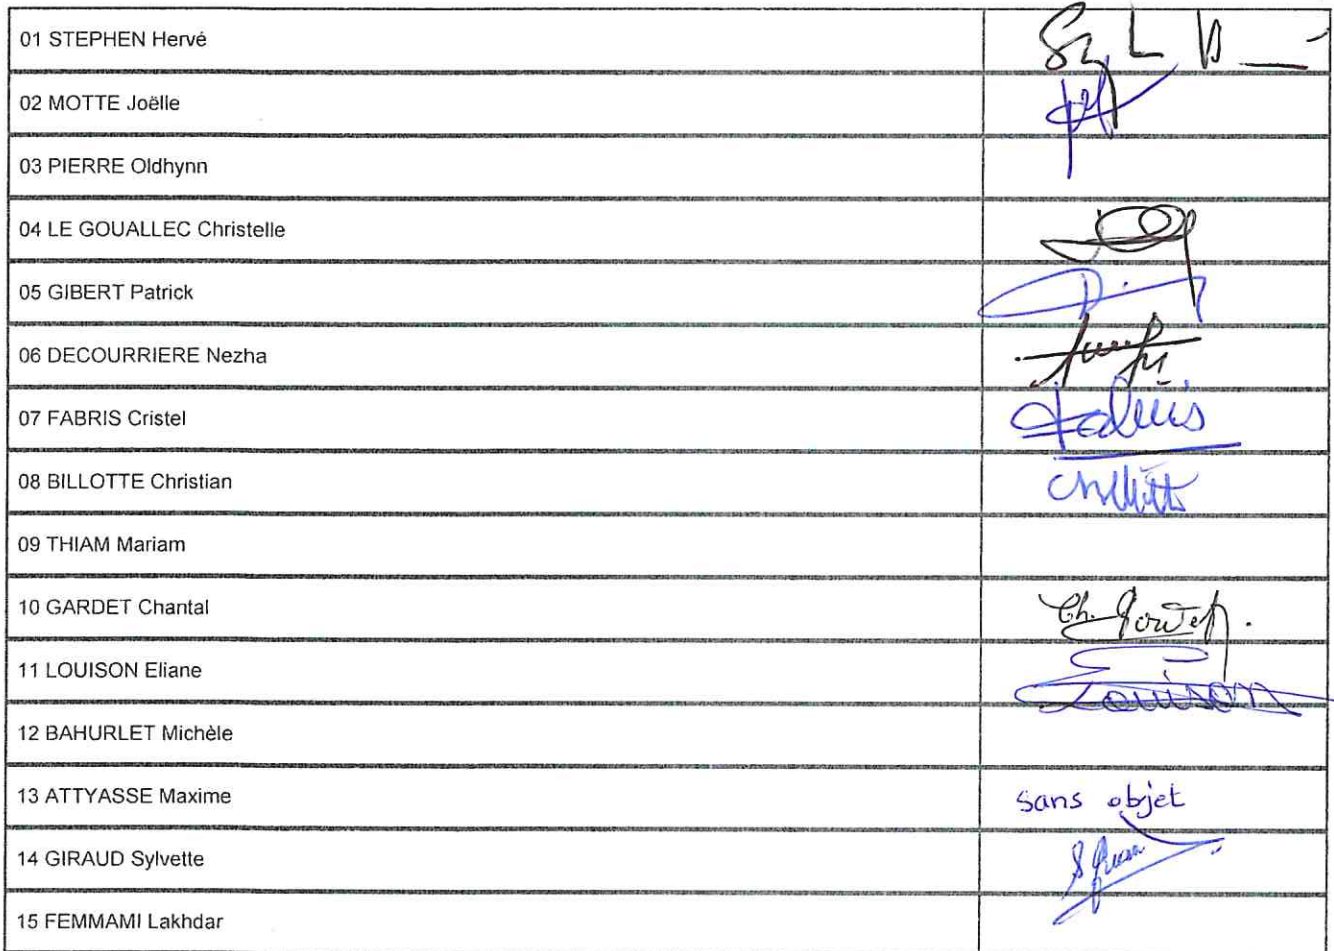 01 STEPHEN Hervé
02 MOTTE Joëlle
03 PIERRE Oldhynn
04 LE GOUALLEC Christelle
05 GIBERT Patrick
06 DECOURRIERE Nezha
07 FABRIS Cristel
Fabris
08 BILLOTTE Christian
09 THIAM Mariam
10 GARDET Chantal
Ch. Gardet.
11 LOUISON Eliane
Louison
12 BAHURLET Michèle
13 ATTYASSE Maxime
sans objet
14 GIRAUD Sylvette
15 FEMMAMI Lakhdar